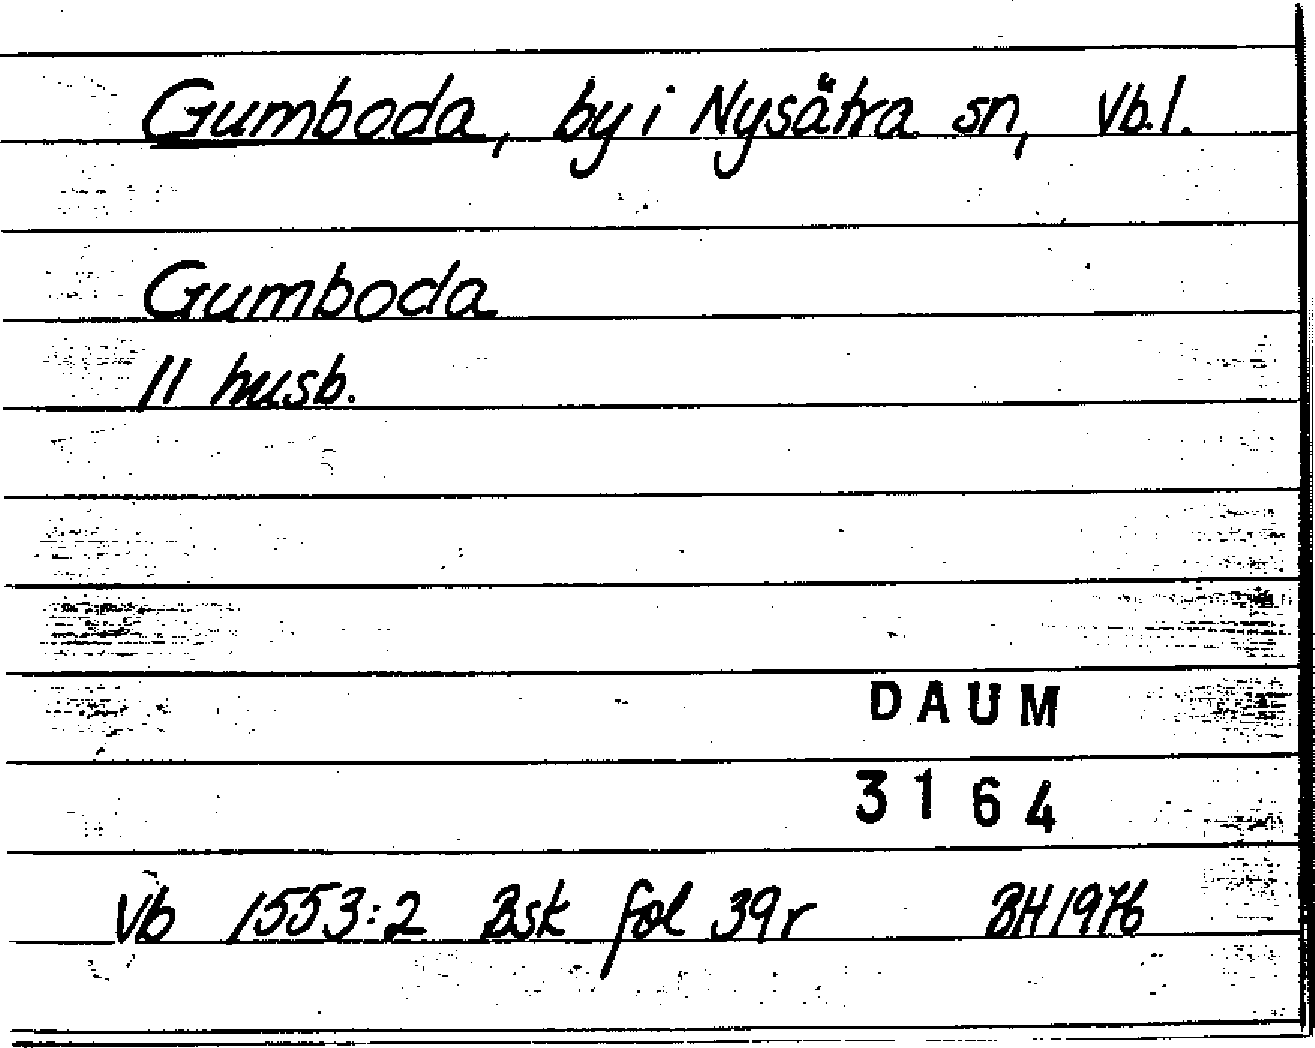 Gumboda, by i Nysätra sn, Vb.l.
Gumboda
11 husb.
DAUM
3164
Vb 1553:2 Bsk fol 39r BH 1976